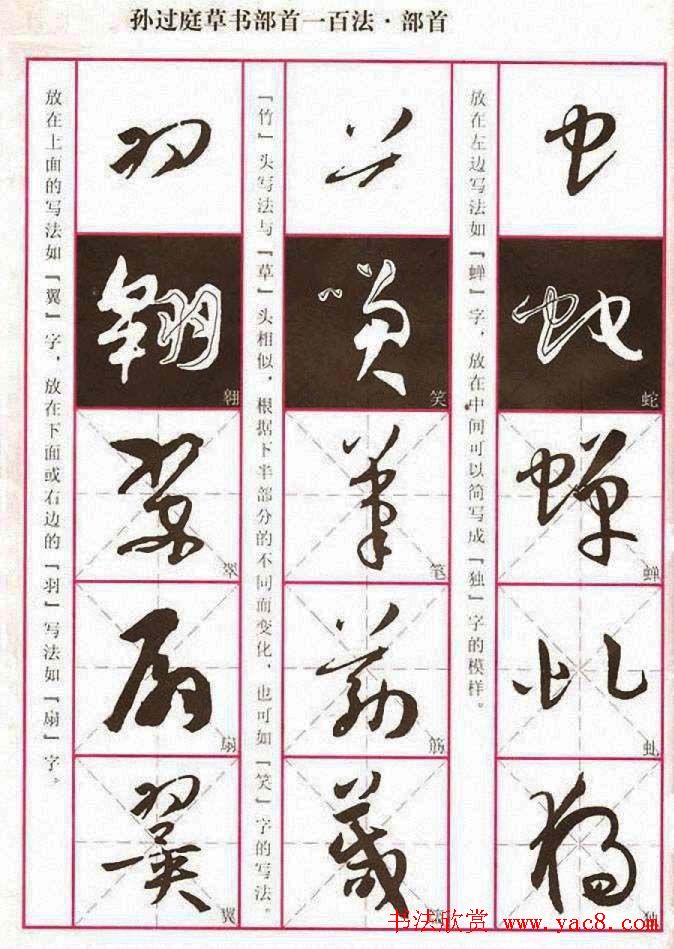 孙过庭草书部首一百法·部首
放在左边写法如「蝉」字，放在中间可以简写成「独」字的模样。
虫
蛇
蝉
虬
独
「竹」头写法与「草」头相似，根据下半部分的不同而变化，也可如「笑」字的写法。
笑
笔
筋
放在上面的写法如「翼」字，放在下面或右边的「羽」写法如「扇」字。
羽
翱
翠
扇
翼
书法欣赏 www.yac8.com